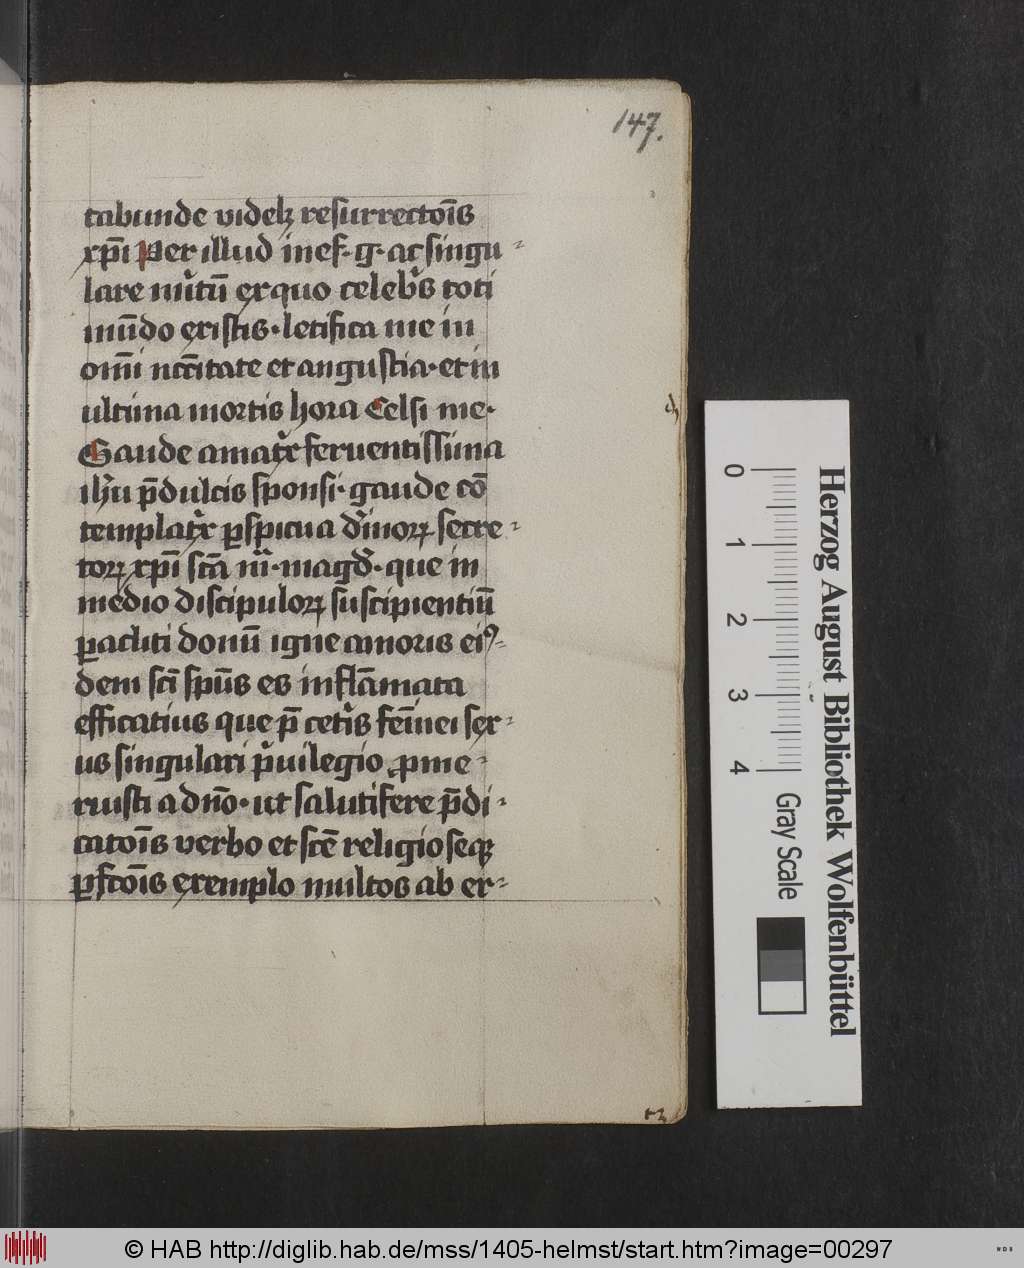 147.
tabunde videlꝫ resurrectōīs
xp̄i Per illud inef· g· ac singu-
lare mu̓tū exquo celebꝰs toti
mūdo existis· letifica me in
om̄i nc̄c̄itate et angustia· et in
ultima mortis hora Celsi me·
Gaude amatͥx feruentissima
ih̄u p̄dulcis sponsi· gaude cō
templatͥx ꝑspicua diͥnoꝝ secre-
toꝝ xp̄i sc̄a m̄· magd̓· que in
medio discipuloꝝ suscipientiū
ꝑacliti donū igne amoris eiꝰ-
dem sc̄i sp̄ūs es inflāmata
efficatius que p̄ cetͥs fēīnei sex-
us singulari pͥuilegio ꝓme-
ruisti a dn̄o· ut salutifere p̄di-
catōīs verbo et sc̄e religioseqꝫ
ꝑfc̄ōīs exemplo multos ab er-
0
1
2
3
4
Gray Scale
Herzog August Bibliothek Wolfenbüttel
© HAB http://diglib.hab.de/mss/1405-helmst/start.htm?image=00297